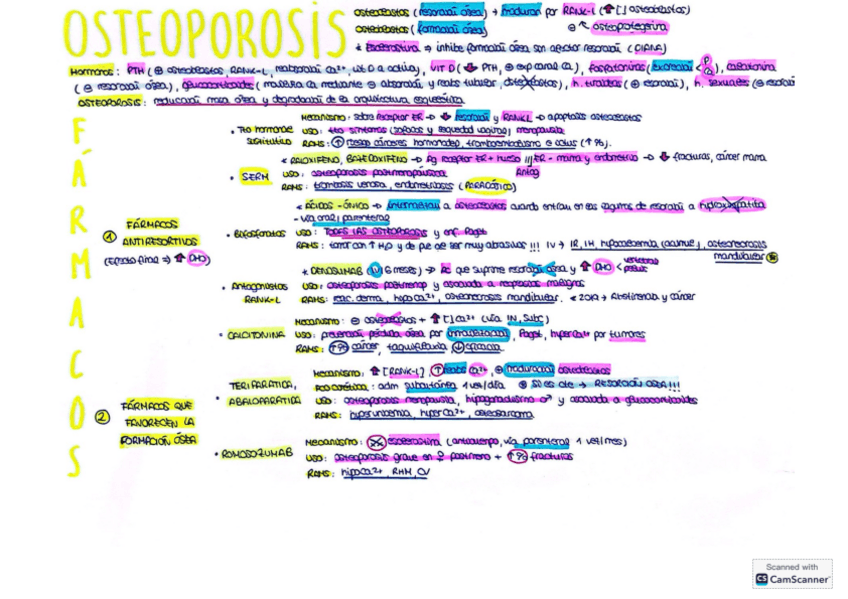 OSTEOPOROSIS
osteoclastos (resorción ósea) → maduran por RANK-L (↑[] osteoclastos)
osteoblastos (formación ósea) ⊖ osteoprotegerina
* Esclerostina → inhibe formación ósea sin afectar resorción (DIANA)
Hormonas: PTH (⊕ osteoclastos, RANK-L, reabsorción Ca²⁺, vit D activa), VIT D (↓ PTH, ⊕ Ca), fosfatoninas (excreción P), calcitonina
(⊖ resorción ósea), glucocorticoides (mediante ⊖ absorción y reabs tubular, osteoblastos), h. tiroideas (⊕ resorción), h. sexuales (⊖ resorción
OSTEOPOROSIS: reducción masa ósea y degradación de la arquitectura esquelética
FÁRMACOS
① FÁRMACOS ANTIRESORTIVOS
(Efecto final → ↑ DMO)
• Tto hormonal sustitutivo
MECANISMO: sobre receptor ER → ↓ resorción y RANKL → apoptosis osteoclastos
USO: tto síntomas (sofocos y sequedad vaginal) menopausia
RAMS: ↑ riesgo cánceres hormonodep, tromboembolismo e ictus (↑%).
• SERM
* RALOXIFENO, BAZEDOXIFENO → Ag receptor ER + hueso /// ER - mama y endometrio → ↓ fracturas, cáncer mama
Antag
USO: osteoporosis postmenopáusica
RAMS: trombosis venosa, endometriosis (PARADÓJICO)
• Bisfosfonatos
* ÁCIDOS -ÓNICO → intoxican a osteoclastos cuando entran en los seguros de resorción a hydroxiapatita
- vía oral / parenteral
USO: TODAS LAS OSTEOPOROSIS y enf. Paget
RAMS: tomar con ↑ H₂O y de pie de ser muy abrasivos !!! IV → IR, IH, hipocalcemia, osteonecrosis mandibular
• Antagonistas RANK-L
* DENOSUMAB (IV/6 meses) → Ac que suprime resorción ósea y ↑ DMO < vertebral
USO: osteoporosis postmenop y asociada a neoplasias malignas
RAMS: reac. derma, hipo Ca²⁺, osteonecrosis mandibular.
• CALCITONINA
MECANISMO: ⊖ osteoclastos + ↑[] Ca²⁺ (vía IN, Subc)
USO: prevención pérdida ósea por inmovilización, Paget, hiperCa²⁺ por tumores
RAMS: ↑% cáncer, taquifilaxia ↓ eficacia
② FÁRMACOS QUE FAVORECEN LA FORMACIÓN ÓSEA
• TERIPARATIDA, ABALOPARATIDA
MECANISMO: ↑[RANK-L], ↑ reabs Ca²⁺, ⊕ maduración osteoblastos
adm subcutánea 1 vez/día ⊗ Si es cte → RESORCIÓN ÓSEA !!!
USO: osteoporosis menopausia, hipogonadismo ♂ y asociada a glucocorticoides
RAMS: hiperuricemia, hiperCa²⁺, osteosarcoma
• ROMOSOZUMAB
MECANISMO: esclerostina (anticuerpo, vía parenteral 1 vez/mes)
USO: osteoporosis grave en ♀ postmeno + ↑% fracturas
RAMS: hipoCa²⁺, RHM, CV
Scanned with
CS CamScanner